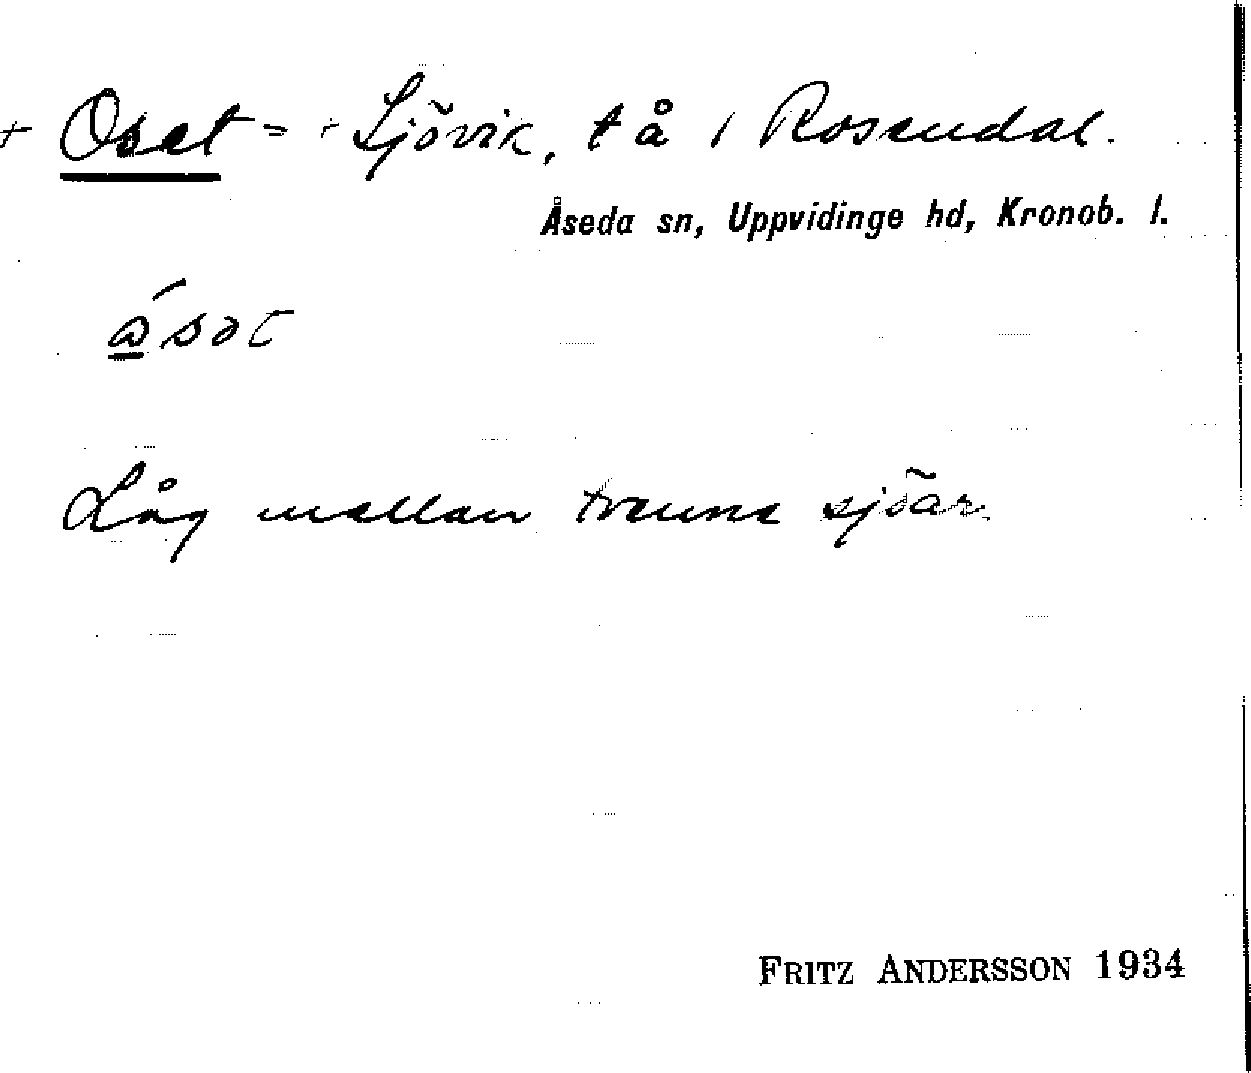 + Oset = + Sjövik, t å 1 Rosendal.
Åseda sn, Uppvidinge hd, Kronob. l.
Låg mellan tvenne sjöar.
FRITZ ANDERSSON 1934